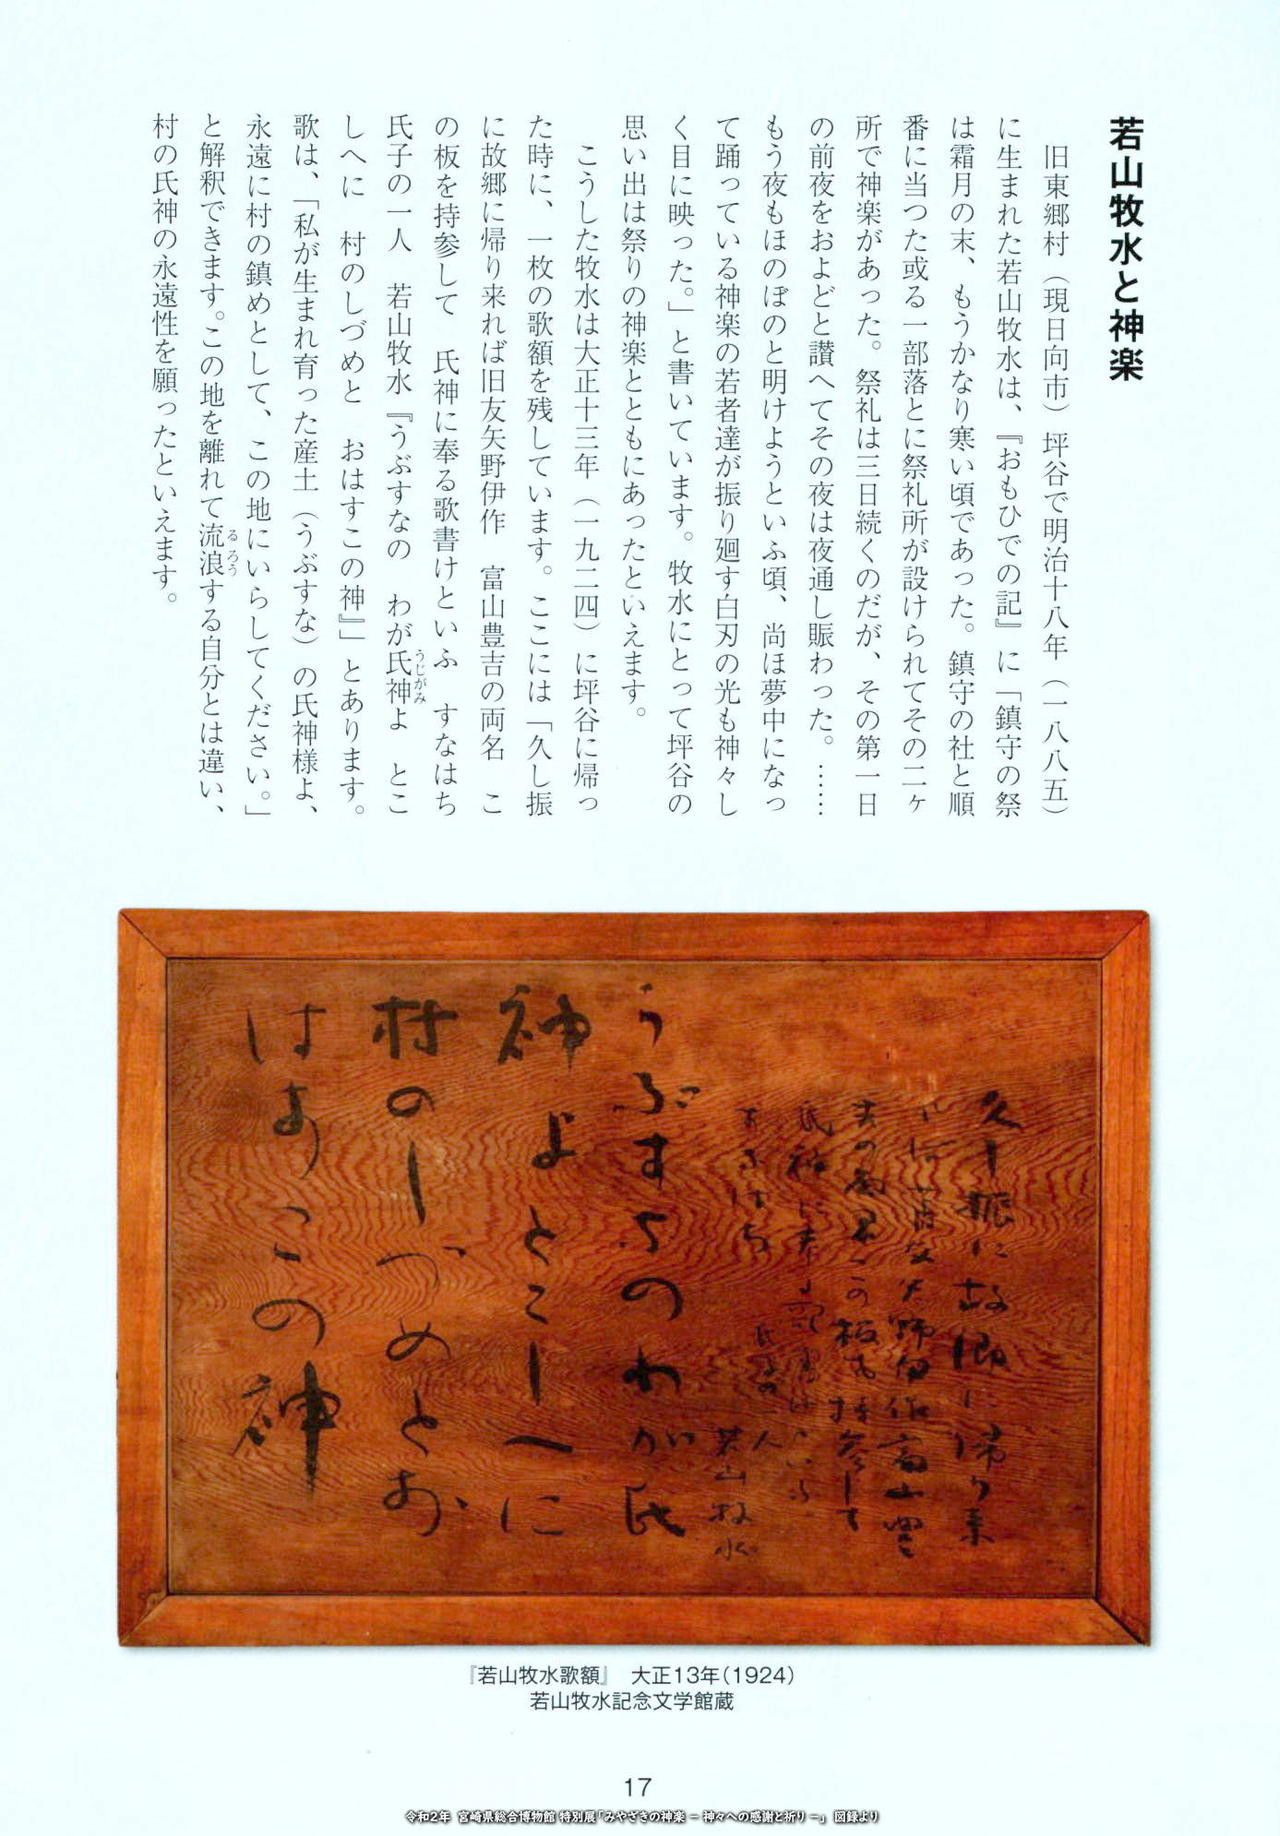 若山牧水と神楽
旧東郷村（現日向市）坪谷で明治十八年（一八八五）
に生まれた若山牧水は、『おもひでの記』に「鎮守の祭
は霜月の末、もうかなり寒い頃であった。鎮守の社と順
番に当つた或る一部落とに祭礼所が設けられてその二ヶ
所で神楽があった。祭礼は三日続くのだが、その第一日
の前夜をおよどと讃へてその夜は夜通し賑わった。……
もう夜もほのぼのと明けようといふ頃、尚ほ夢中になっ
て踊っている神楽の若者達が振り廻す白刃の光も神々し
く目に映った。」と書いています。牧水にとって坪谷の
思い出は祭りの神楽とともにあったといえます。
こうした牧水は大正十三年（一九二四）に坪谷に帰っ
た時に、一枚の歌額を残しています。ここには「久し振
に故郷に帰り来れば旧友矢野伊作　富山豊吉の両名　こ
の板を持参して　氏神に奉る歌書けといふ　すなはち
氏子の一人　若山牧水『うぶすなの　わが氏神よ　とこ
うじがみ
しへに　村のしづめと　おはすこの神』」とあります。
歌は、「私が生まれ育った産土（うぶすな）の氏神様よ、
永遠に村の鎮めとして、この地にいらしてください。」
と解釈できます。この地を離れて流浪する自分とは違い、
るろう
村の氏神の永遠性を願ったといえます。
久し振に故郷に帰り来
れば旧友矢野伊作富山豊
吉の両名この板を持参して
氏神に奉る歌書けといふ
すなはち
氏子の一人
若山牧水
うぶすなのわが氏
神よとこしへに
村のしづめとお
はすこの神
『若山牧水歌額』　大正13年(1924)
若山牧水記念文学館蔵
17
令和2年 宮崎県総合博物館 特別展「みやざきの神楽 － 神々への感謝と祈り －」 図録より